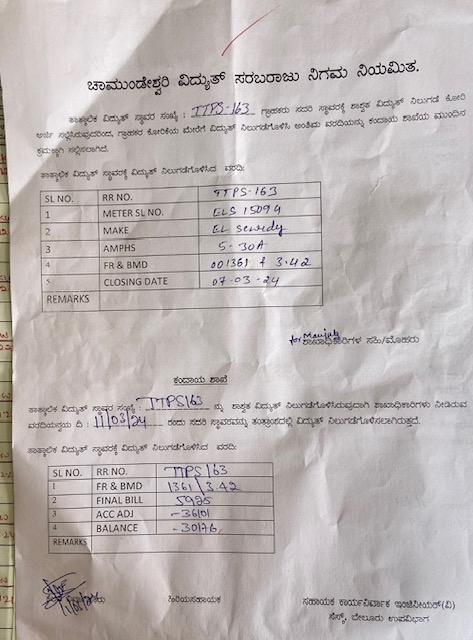 ಚಾಮುಂಡೇಶ್ವರಿ ವಿದ್ಯುತ್ ಸರಬರಾಜು ನಿಗಮ ನಿಯಮಿತ.
ತಾತ್ಕಾಲಿಕ ವಿದ್ಯುತ್ ಸ್ಥಾವರ ಸಂಖ್ಯೆ : TTPS-163 ಗ್ರಾಹಕರು ಸದರಿ ಸ್ಥಾವರಕ್ಕೆ ಶಾಶ್ವತ ವಿದ್ಯುತ್ ನಿಲುಗಡೆ ಕೋರಿ
ಅರ್ಜಿ ಸಲ್ಲಿಸಿರುವುದರಿಂದ, ಗ್ರಾಹಕರ ಕೋರಿಕೆಯ ಮೇರೆಗೆ ವಿದ್ಯುತ್ ನಿಲುಗಡೆಗೊಳಿಸಿ ಅಂತಿಮ ವರದಿಯನ್ನು ಕಂದಾಯ ಶಾಖೆಯ ಮುಂದಿನ
ಕ್ರಮಕ್ಕಾಗಿ ಸಲ್ಲಿಸಲಾಗಿದೆ.
ತಾತ್ಕಾಲಿಕ ವಿದ್ಯುತ್ ಸ್ಥಾವರಕ್ಕೆ ವಿದ್ಯುತ್ ನಿಲುಗಡೆಗೊಳಿಸಿದ ವರದಿ:
SL NO. RR NO. TTPS-163
1 METER SL NO. ELS 15094
2 MAKE EL
3 AMPHS 5-30A
4 FR & BMD 001361 & 3.42
5 CLOSING DATE 07-03-24
REMARKS
for ಶಾಖಾಧಿಕಾರಿಗಳ ಸಹಿ/ಮೊಹರು
ಕಂದಾಯ ಶಾಖೆ
ತಾತ್ಕಾಲಿಕ ವಿದ್ಯುತ್ ಸ್ಥಾವರ ಸಂಖ್ಯೆ : TTPS163 ನ್ನು ಶಾಶ್ವತ ವಿದ್ಯುತ್ ನಿಲುಗಡೆಗೊಳಿಸಿರುವುದಾಗಿ ಶಾಖಾಧಿಕಾರಿಗಳು ನೀಡಿರುವ
ವರದಿಯನ್ವಯ ದಿ : 11/03/24 ರಂದು ಸದರಿ ಸ್ಥಾವರವನ್ನು ತಂತ್ರಾಂಶದಲ್ಲಿ ವಿದ್ಯುತ್ ನಿಲುಗಡೆಗೊಳಿಸಲಾಗಿರುತ್ತದೆ.
ತಾತ್ಕಾಲಿಕ ವಿದ್ಯುತ್ ಸ್ಥಾವರಕ್ಕೆ ವಿದ್ಯುತ್ ನಿಲುಗಡೆಗೊಳಿಸಿದ ವರದಿ:
SL NO. RR NO. TTPS163
1 FR & BMD 1361 \ 3.42
2 FINAL BILL 5925
3 ACC ADJ -36101
4 BALANCE -30176
REMARKS
ಹಿರಿಯಸಹಾಯಕ
ಸಹಾಯಕ ಕಾರ್ಯನಿರ್ವಾಹಕ ಇಂಜಿನೀಯರ್(ವಿ)
ಸೆಸ್ಕ್, ಬೇಲೂರು ಉಪವಿಭಾಗ